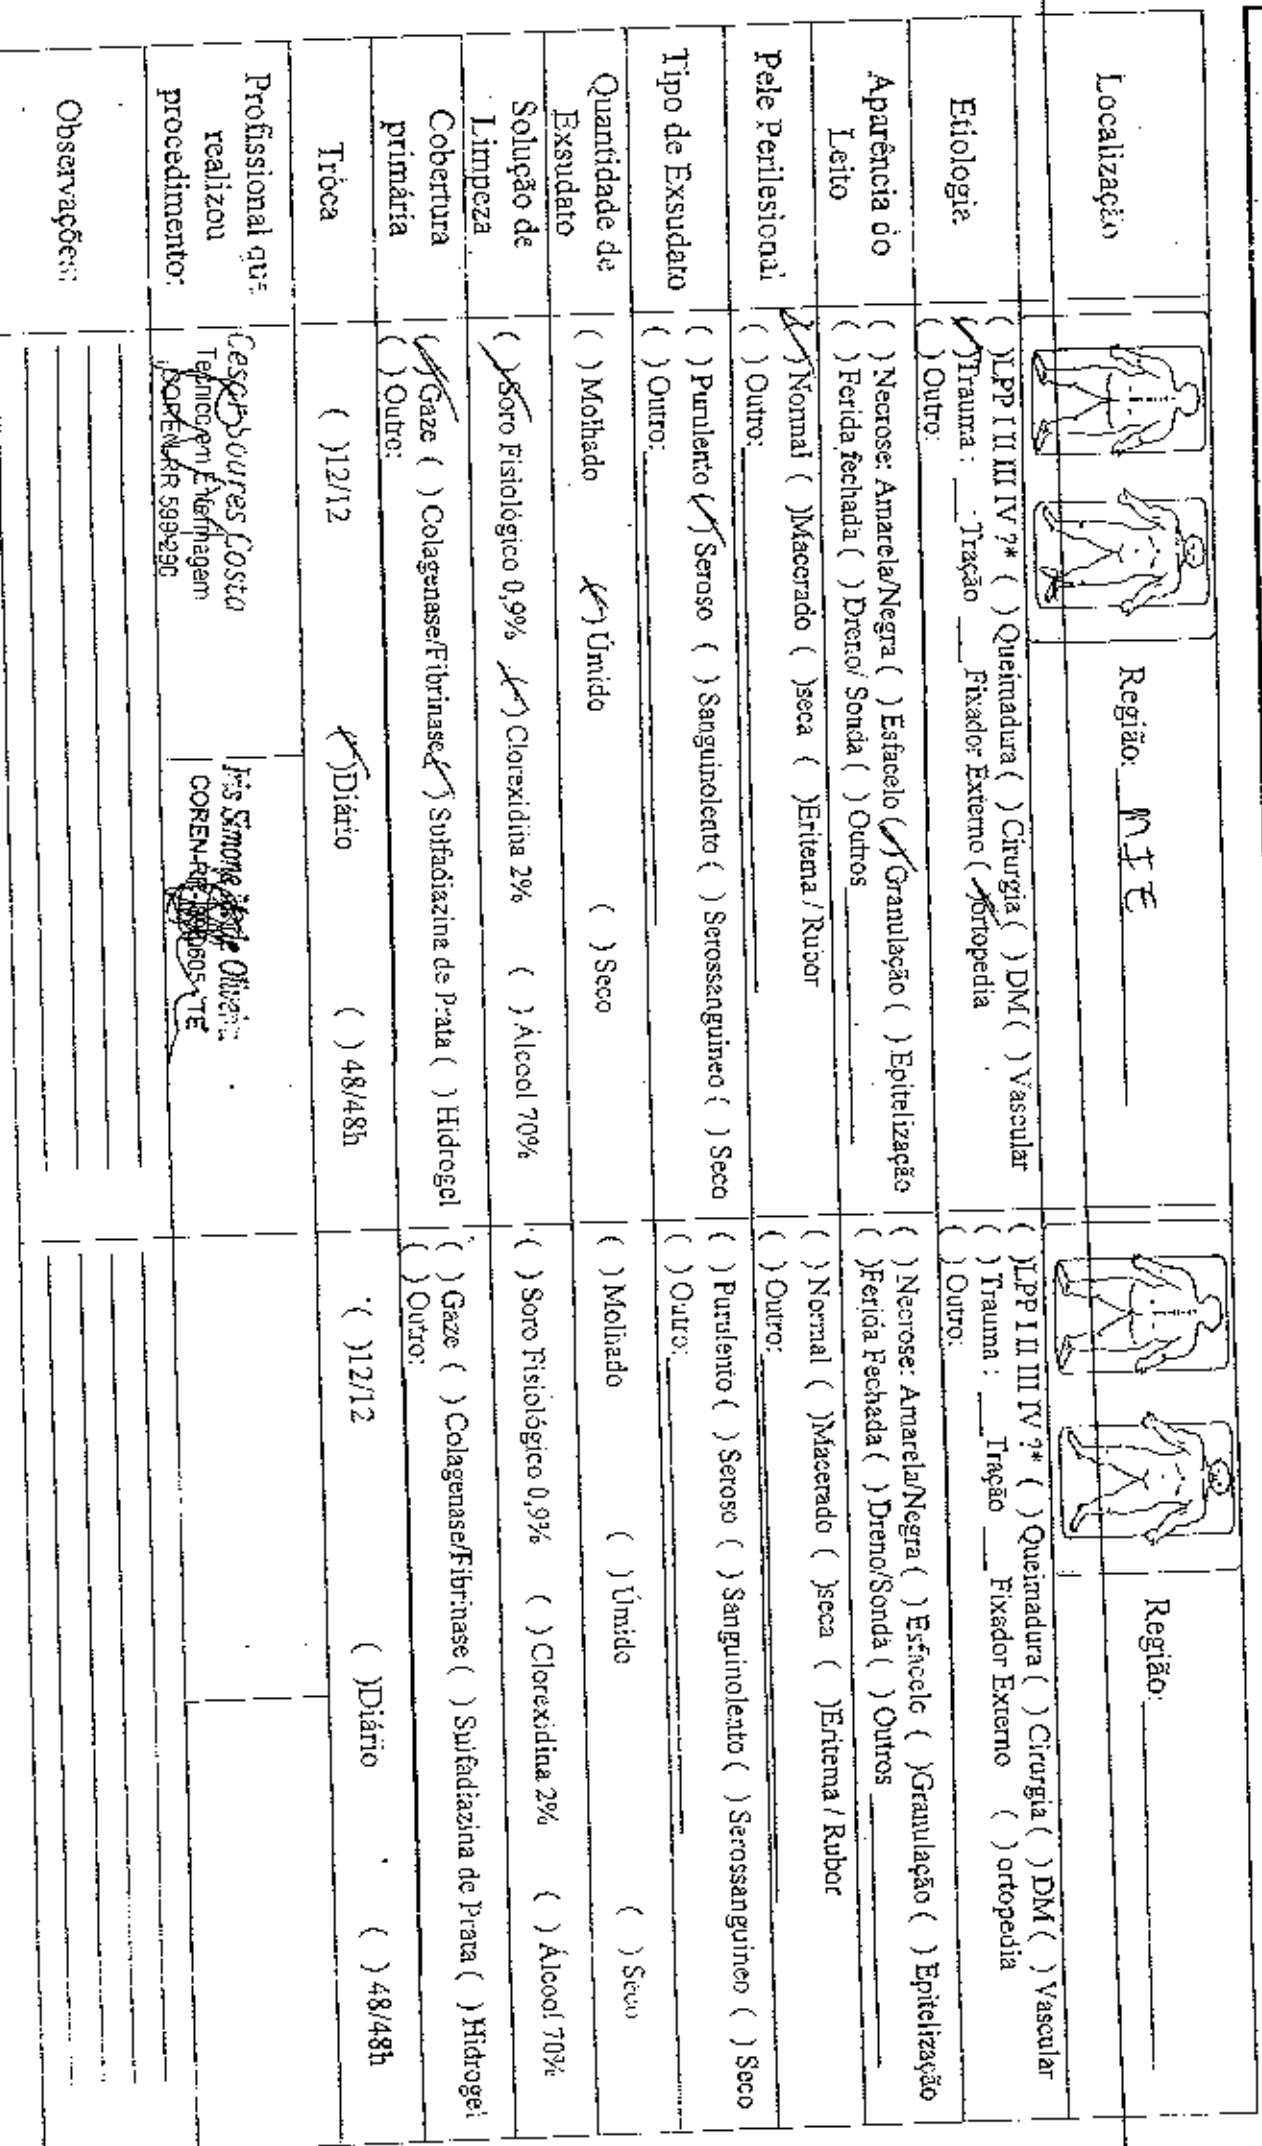 Localização
Região: MIE
Região:
Etiologia
( )LPP I II III IV ?* ( ) Queimadura ( ) Cirurgia ( ) DM ( ) Vascular
(✓)Trauma : ___ Tração ___ Fixador Externo (✓)ortopedia
( ) Outro:
( )LPP I II III IV ?* ( ) Queimadura ( ) Cirurgia ( ) DM ( ) Vascular
( ) Trauma : ___ Tração ___ Fixador Externo ( ) ortopedia
( ) Outro:
Aparência do
Leito
( ) Necrose: Amarela/Negra ( ) Esfacelo (✓) Granulação ( ) Epitelização
( ) Ferida fechada ( ) Dreno/ Sonda ( ) Outros
( ) Necrose: Amarela/Negra ( ) Esfacelo ( )Granulação ( ) Epitelização
( )Ferida Fechada ( ) Dreno/Sonda ( ) Outros
Pele Perilesional
(✓) Normal ( )Macerado ( )seca ( )Eritema / Rubor
( ) Outro:
( ) Normal ( )Macerado ( )seca ( )Eritema / Rubor
( ) Outro:
Tipo de Exsudato
( ) Purulento (✓) Seroso ( ) Sanguinolento ( ) Serossanguineo ( ) Seco
( ) Outro:
( ) Purulento ( ) Seroso ( ) Sanguinolento ( ) Serossanguineo ( ) Seco
( ) Outro:
Quantidade de
Exsudato
( ) Molhado (✓) Úmido ( ) Seco
( ) Molhado ( ) Úmido ( ) Seco
Solução de
Limpeza
(✓)Soro Fisiológico 0,9% (✓) Clorexidina 2% ( ) Álcool 70%
( ) Soro Fisiológico 0,9% ( ) Clorexidina 2% ( ) Álcool 70%
Cobertura
primária
(✓)Gaze ( ) Colagenase/Fibrinase (✓) Sulfadiazina de Prata ( ) Hidrogel
( ) Outro:
( ) Gaze ( ) Colagenase/Fibrinase ( ) Sulfadiazina de Prata ( ) Hidrogel
( ) Outro:
Troca
( )12/12 (✓)Diário ( ) 48/48h
( )12/12 ( )Diário ( ) 48/48h
Profissional que
realizou
procedimento:
Soures Costa
Técnico em Enfermagem
COREN-RR 599-290
Iris Simone de Oliveira
COREN-RR 605-TE
Observações: